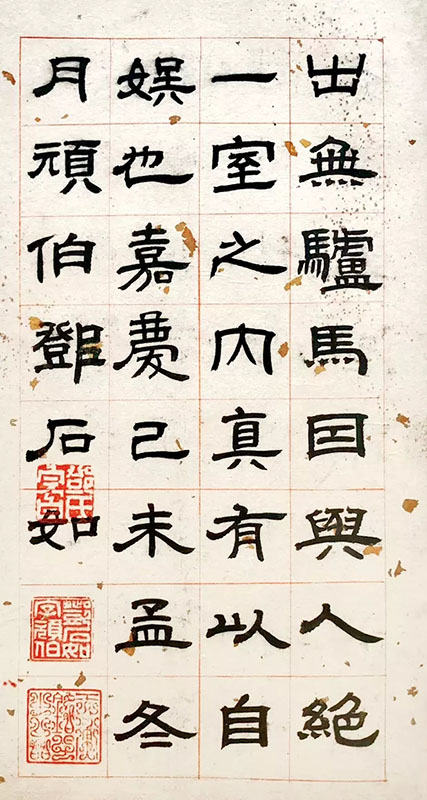 出無驢馬因與人絕
一室之內真有以自
娛也嘉慶己未孟冬
月頑伯鄧石如
鄧石如字頑伯